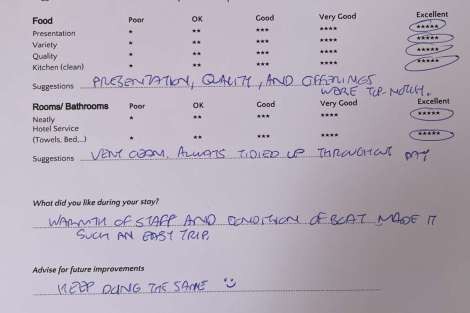 Food Poor OK Good Very Good Excellent
Presentation * ** *** **** *****
Variety * ** *** **** *****
Quality * ** *** **** *****
Kitchen (clean) * ** *** **** *****
Suggestions PRESENTATION, QUALITY, AND OFFERINGS
WERE TOP-NOTCH.
Rooms/ Bathrooms Poor OK Good Very Good Excellent
Neatly * ** *** **** *****
Hotel Service
(Towels, Bed,..) * ** *** **** *****
Suggestions VERY CLEAN. ALWAYS TIDIED UP THROUGHOUT DAY
What did you like during your stay?
WARMTH OF STAFF AND CONDITION OF BOAT MADE IT
SUCH AN EASY TRIP.
Advise for future improvements
KEEP DOING THE SAME